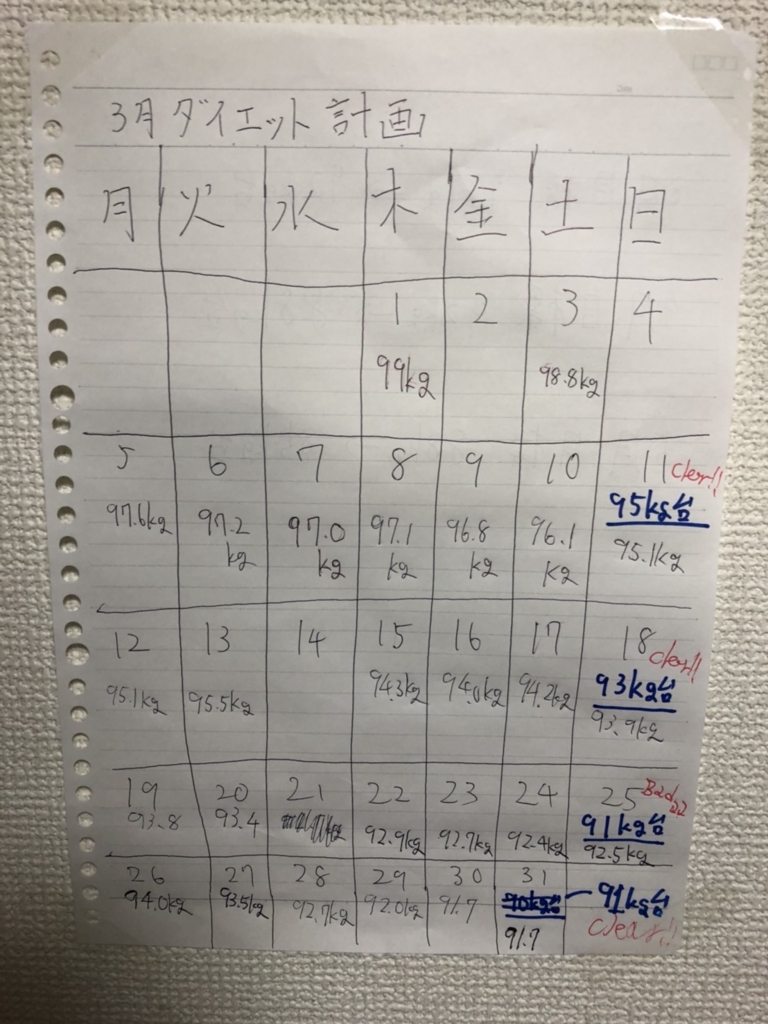 3月ダイエット計画
月 火 水 木 金 土 日
1 2 3 4
99kg 98.8kg
5 6 7 8 9 10 11 Clear!!
95kg台
97.6kg 97.2kg 97.0kg 97.1kg 96.8kg 96.1kg 95.1kg
12 13 14 15 16 17 18 clear!!
93kg台
95.1kg 95.5kg 94.3kg 94.0kg 94.2kg 93.9kg
19 20 21 22 23 24 25 Bad
91kg台
93.8 93.4 92.9kg 92.7kg 92.4kg 92.5kg
26 27 28 29 30 31
90kg台 91kg台
94.0kg 93.5kg 92.7kg 92.0kg 91.7 91.7 clear!!